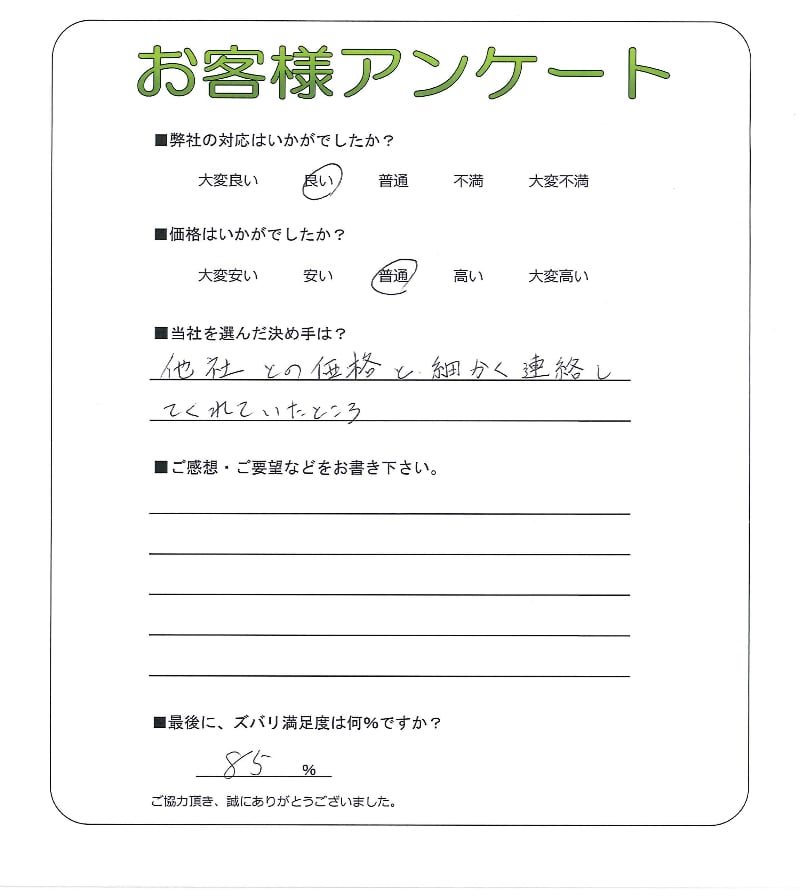 お客様アンケート
■弊社の対応はいかがでしたか？
大変良い 良い 普通 不満 大変不満
■価格はいかがでしたか？
大変安い 安い 普通 高い 大変高い
■当社を選んだ決め手は？
他社との価格と細かく連絡し
てくれていたところ
■ご感想・ご要望などをお書き下さい。
■最後に、ズバリ満足度は何%ですか？
85 %
ご協力頂き、誠にありがとうございました。